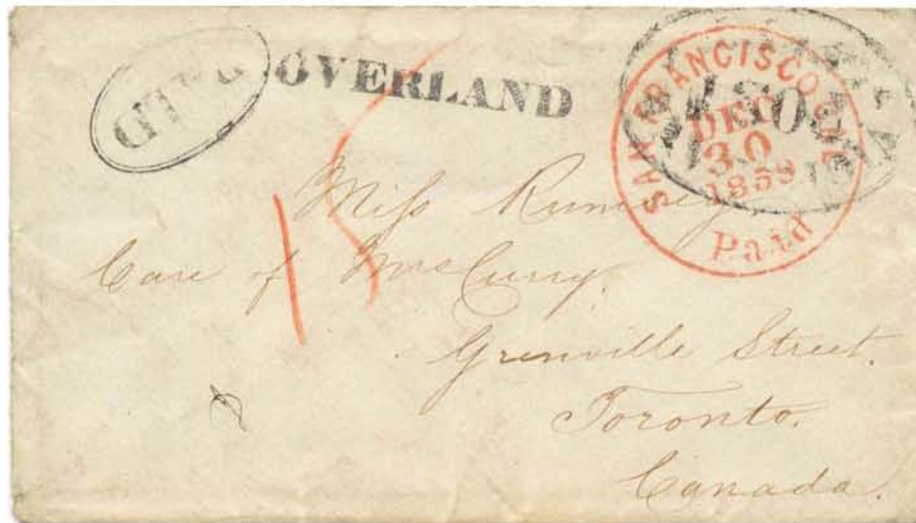 PAID
OVERLAND
SAN FRANCISCO CAL
DEC
30
1859
Paid
15
Miss Rumsey
Care of Mrs Curry.
Grenville Street.
Toronto.
Canada.